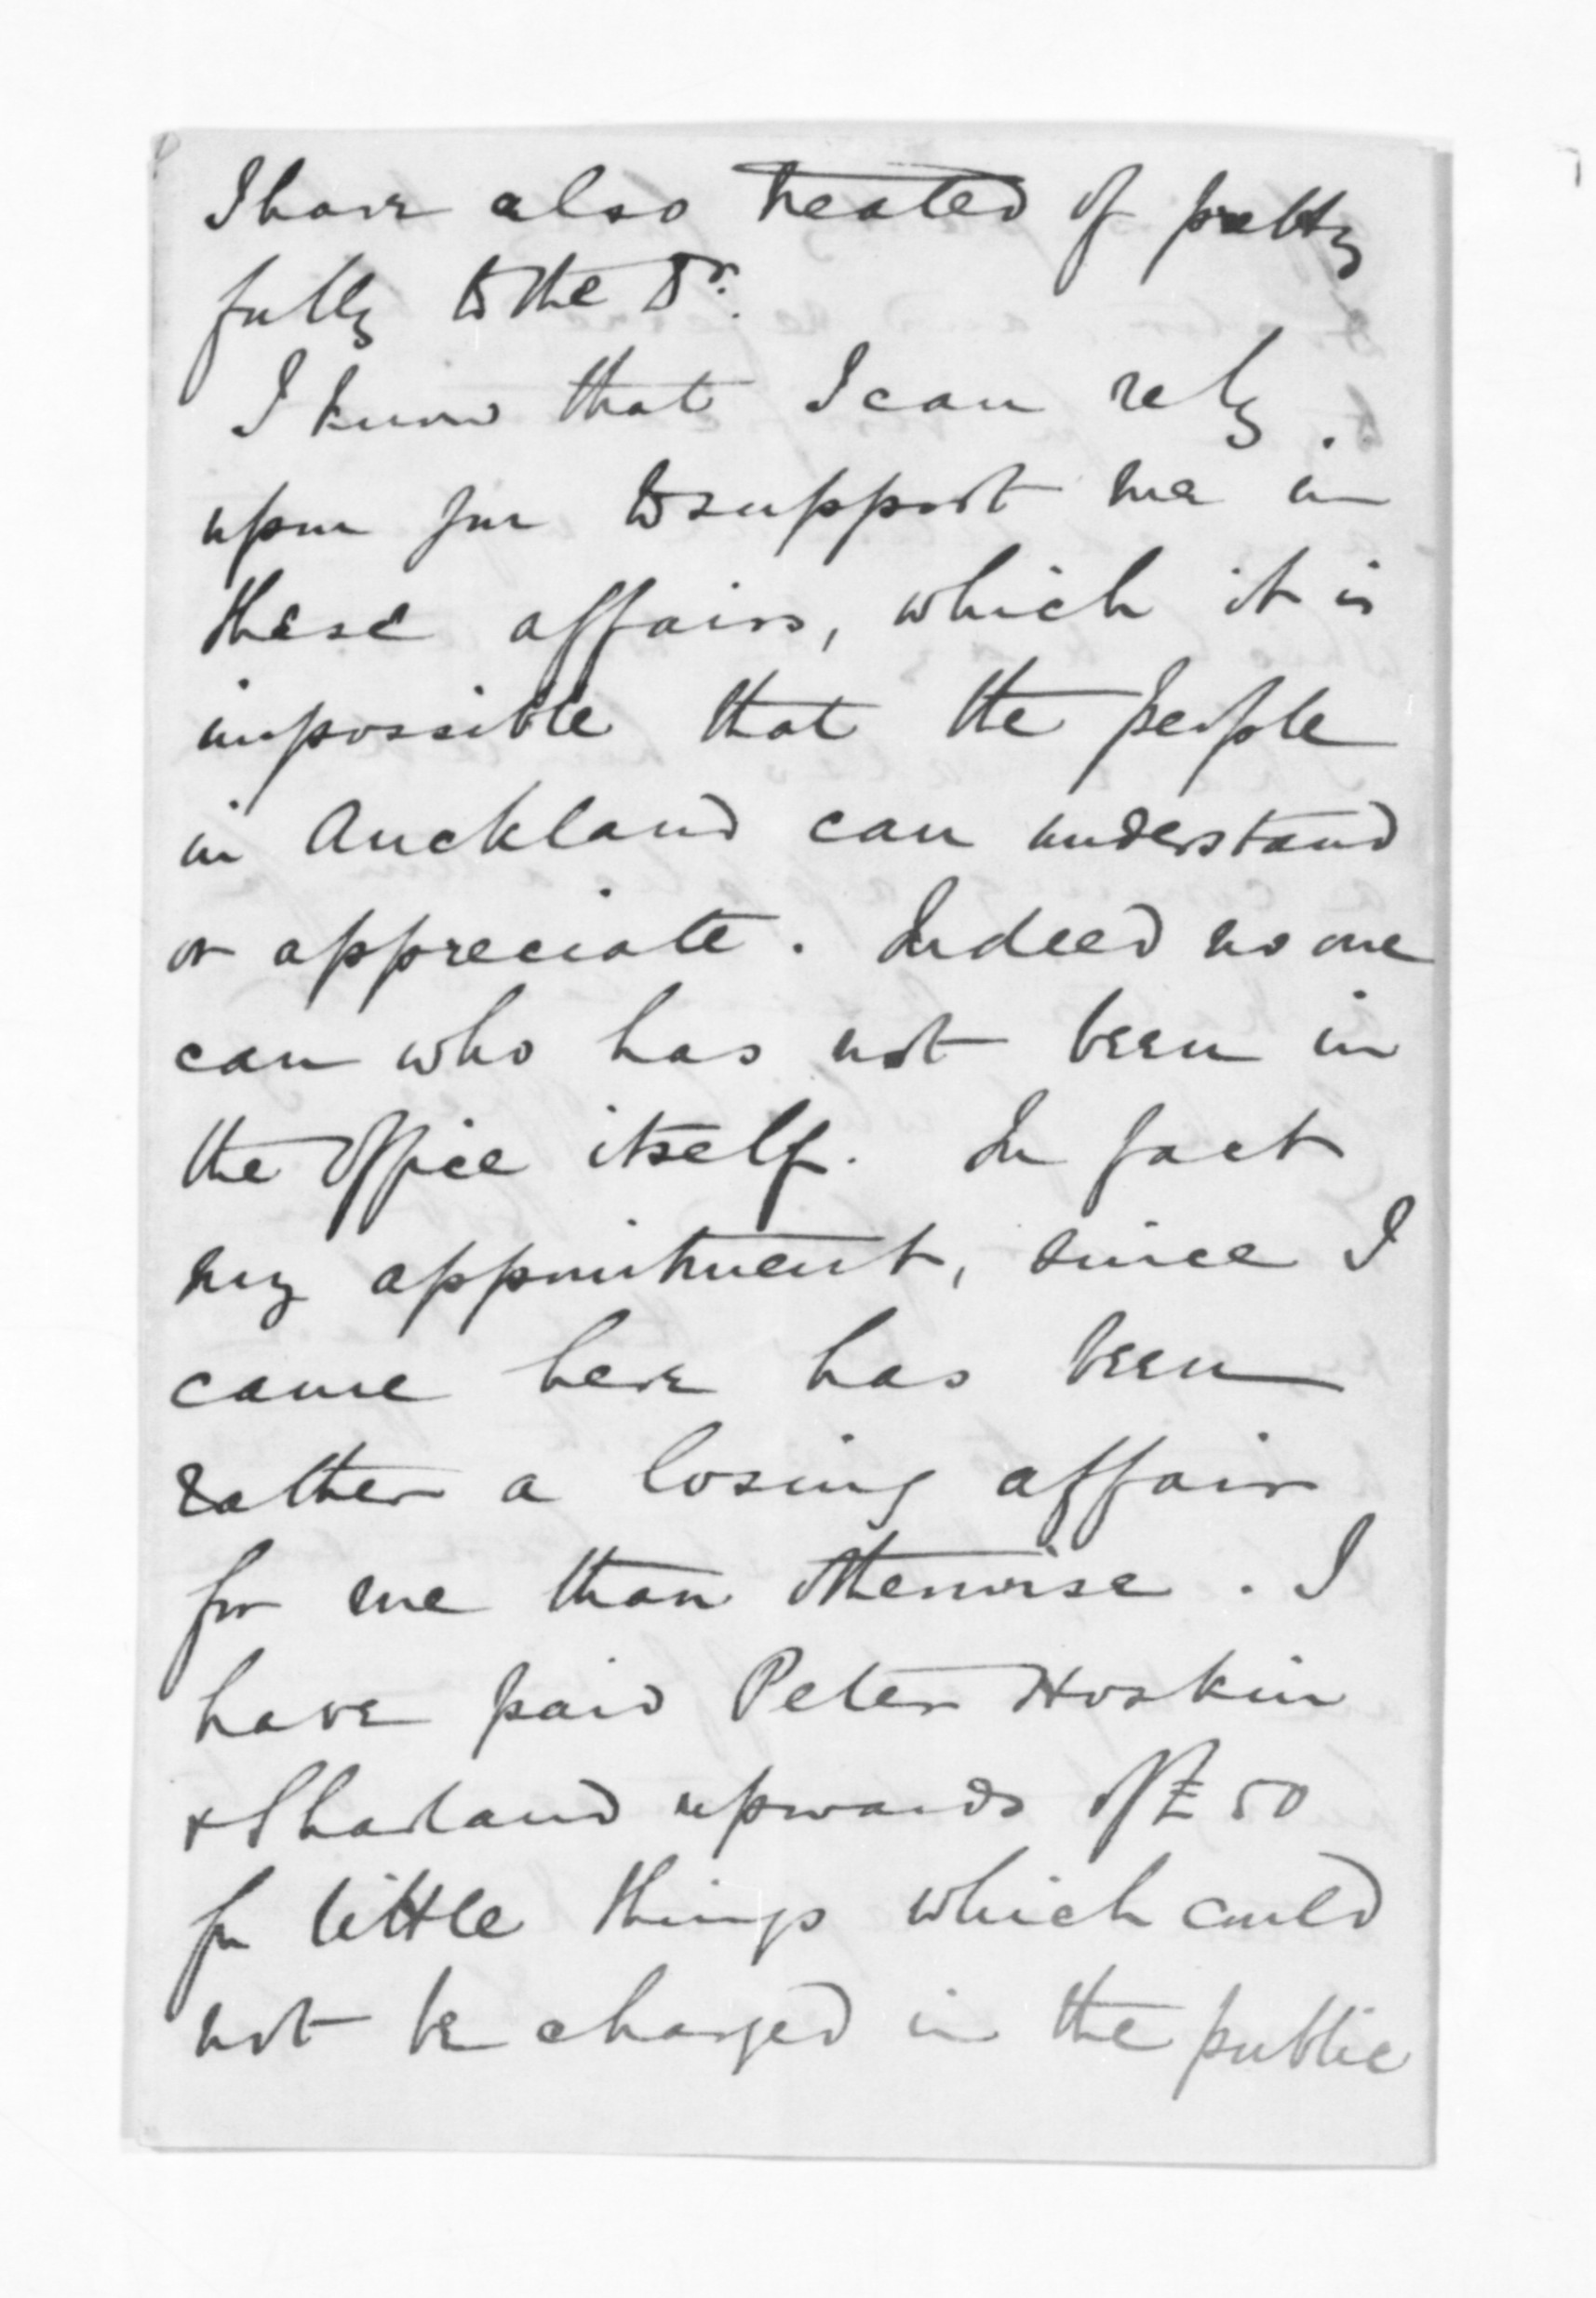 I have also treated of pretty
fully to the Dr.
I know that I can rely
upon you to support me in
these affairs, which it is
impossible that the people
in Auckland can understand
or appreciate. Indeed no one
can who has not been in
the Office itself. In fact
my appointment, since I
came here has been
rather a losing affair
for me than otherwise. I
have paid Peter Hoskin
& Sharland upwards of £50
for little things which could
not be charged in the public